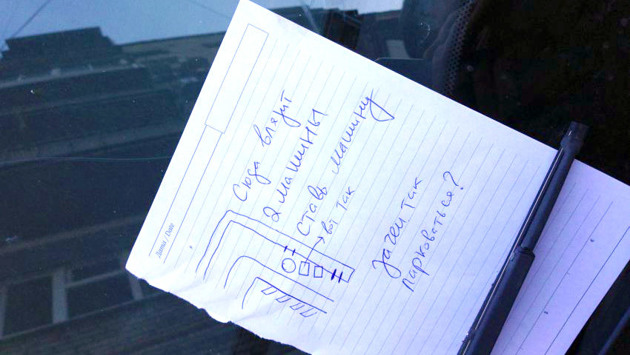 Сюда влязит
2 машины
ставь машину
вот так
зачем так
парковаться?
Datum / Date